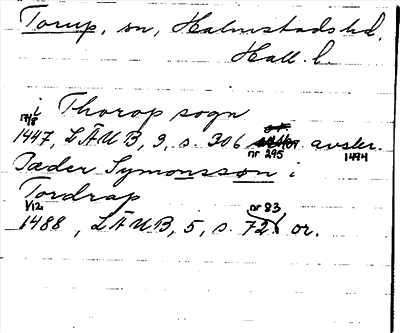 Torup, sn, Halmstads hd,
Hall. l.
i Thorop sogn
17/8 1447, LÄUB, 3, s. 306 nr 295 avskr. 1494
Pæder Symonsson i
Tordrap
1/12 1488, LÄUB, 5, s. 72 nr 83 or.